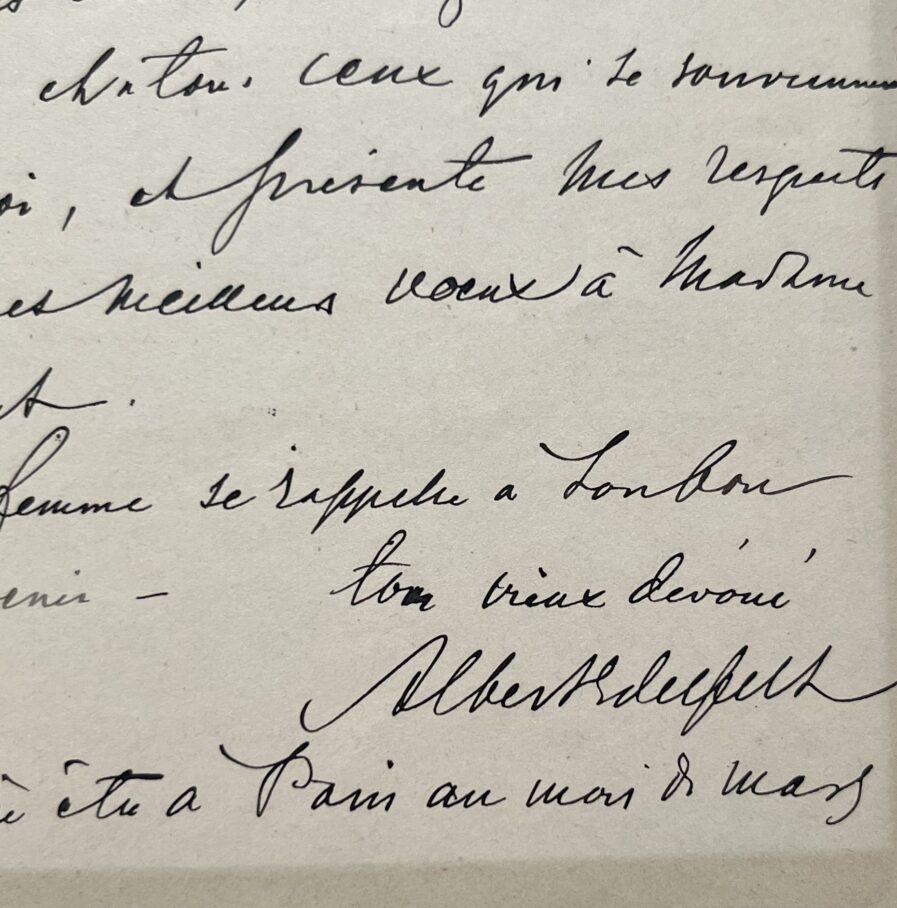 et à tous ceux qui se souviennen
oi, et présente mes respects
es meilleurs voeux à Madame
t.
femme se rappelle à ton bon
enir –
ton vieux dévoué
Albert Edelfelt
être à Paris au mois de mars